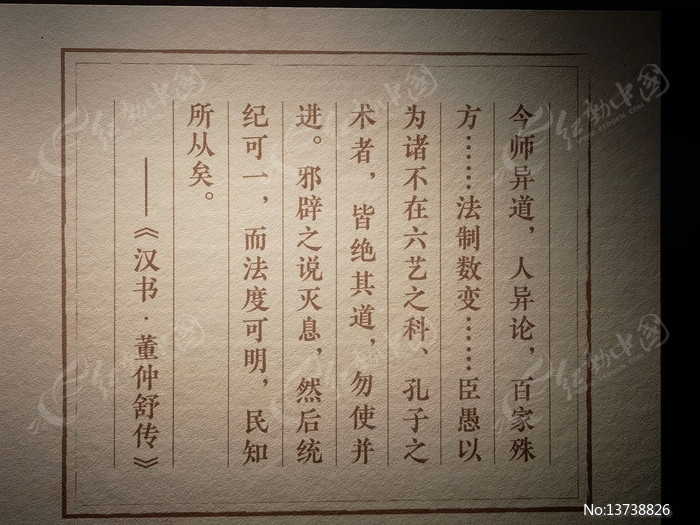 今师异道，人异论，百家殊
方……法制数变……臣愚以
为诸不在六艺之科、孔子之
术者，皆绝其道，勿使并
进。邪辟之说灭息，然后统
纪可一，而法度可明，民知
所从矣。
——《汉书·董仲舒传》
红动中国
No:13738826